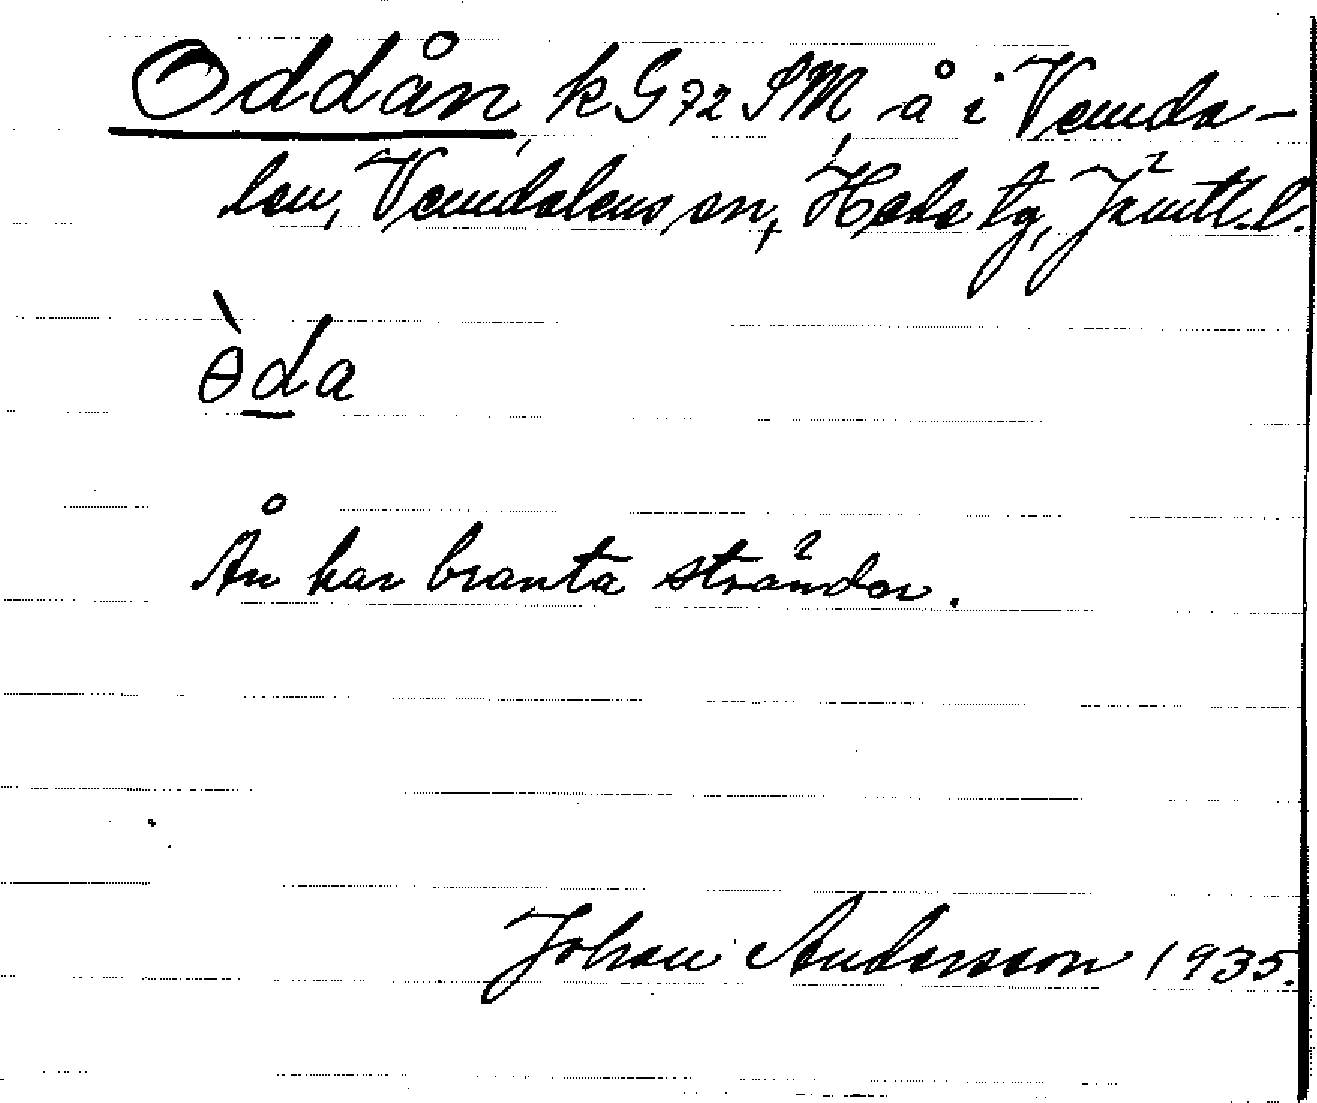 Oddån, k G 72 SM å i Vemda-
len, Vemdalens sn, Hede tg, Jämtl. l.
ɵ̀da
Ån har branta stränder.
Johan Andersson 1935.